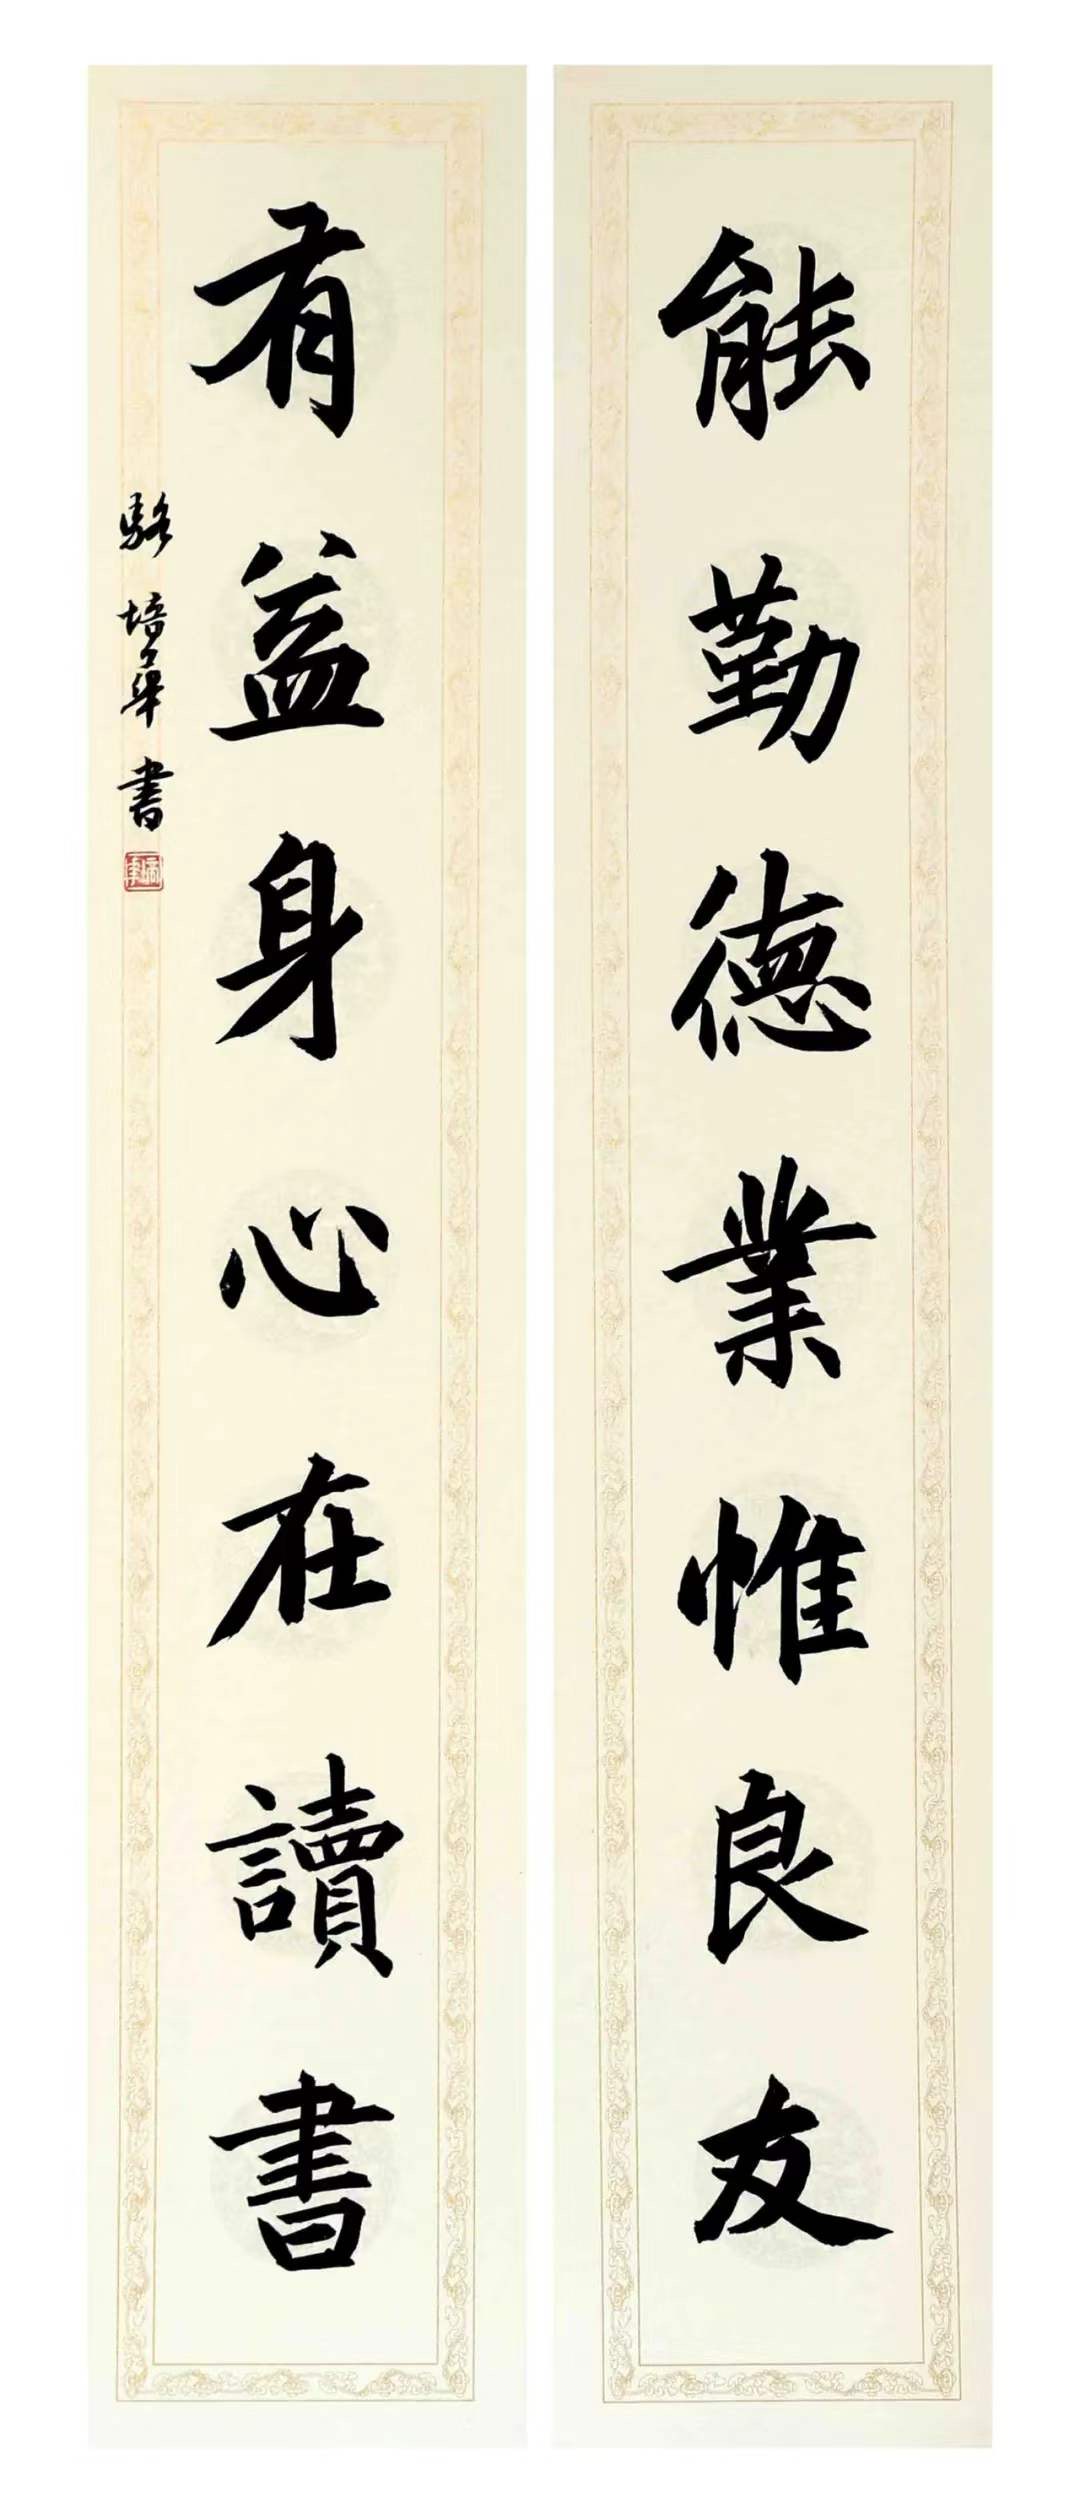 能勤德業惟良友
有益身心在讀書
駱培華書